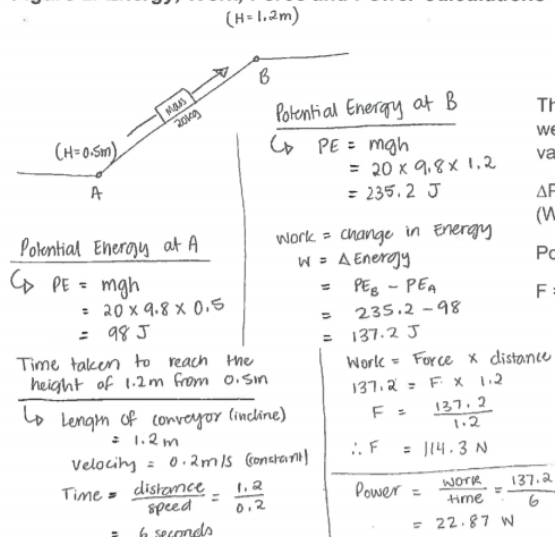 (H=1.2m)
B
Mass
20kg
(H=0.5m)
A
Potential Energy at A
PE = mgh
= 20 x 9.8 x 0.5
= 98 J
Time taken to reach the
height of 1.2m from 0.5m
Length of conveyor (incline)
= 1.2 m
Velocity = 0.2m/s (constant)
Time = distance/speed = 1.2/0.2
= 6 seconds
Potential Energy at B
PE = mgh
= 20 x 9.8 x 1.2
= 235.2 J
Work = change in Energy
W = Δ Energy
= PE_B - PE_A
= 235.2 - 98
= 137.2 J
Work = Force x distance
137.2 = F x 1.2
F = 137.2/1.2
∴ F = 114.3 N
Power = work/time = 137.2/6
= 22.87 W
Th
we
va
ΔF
(W
Po
F =